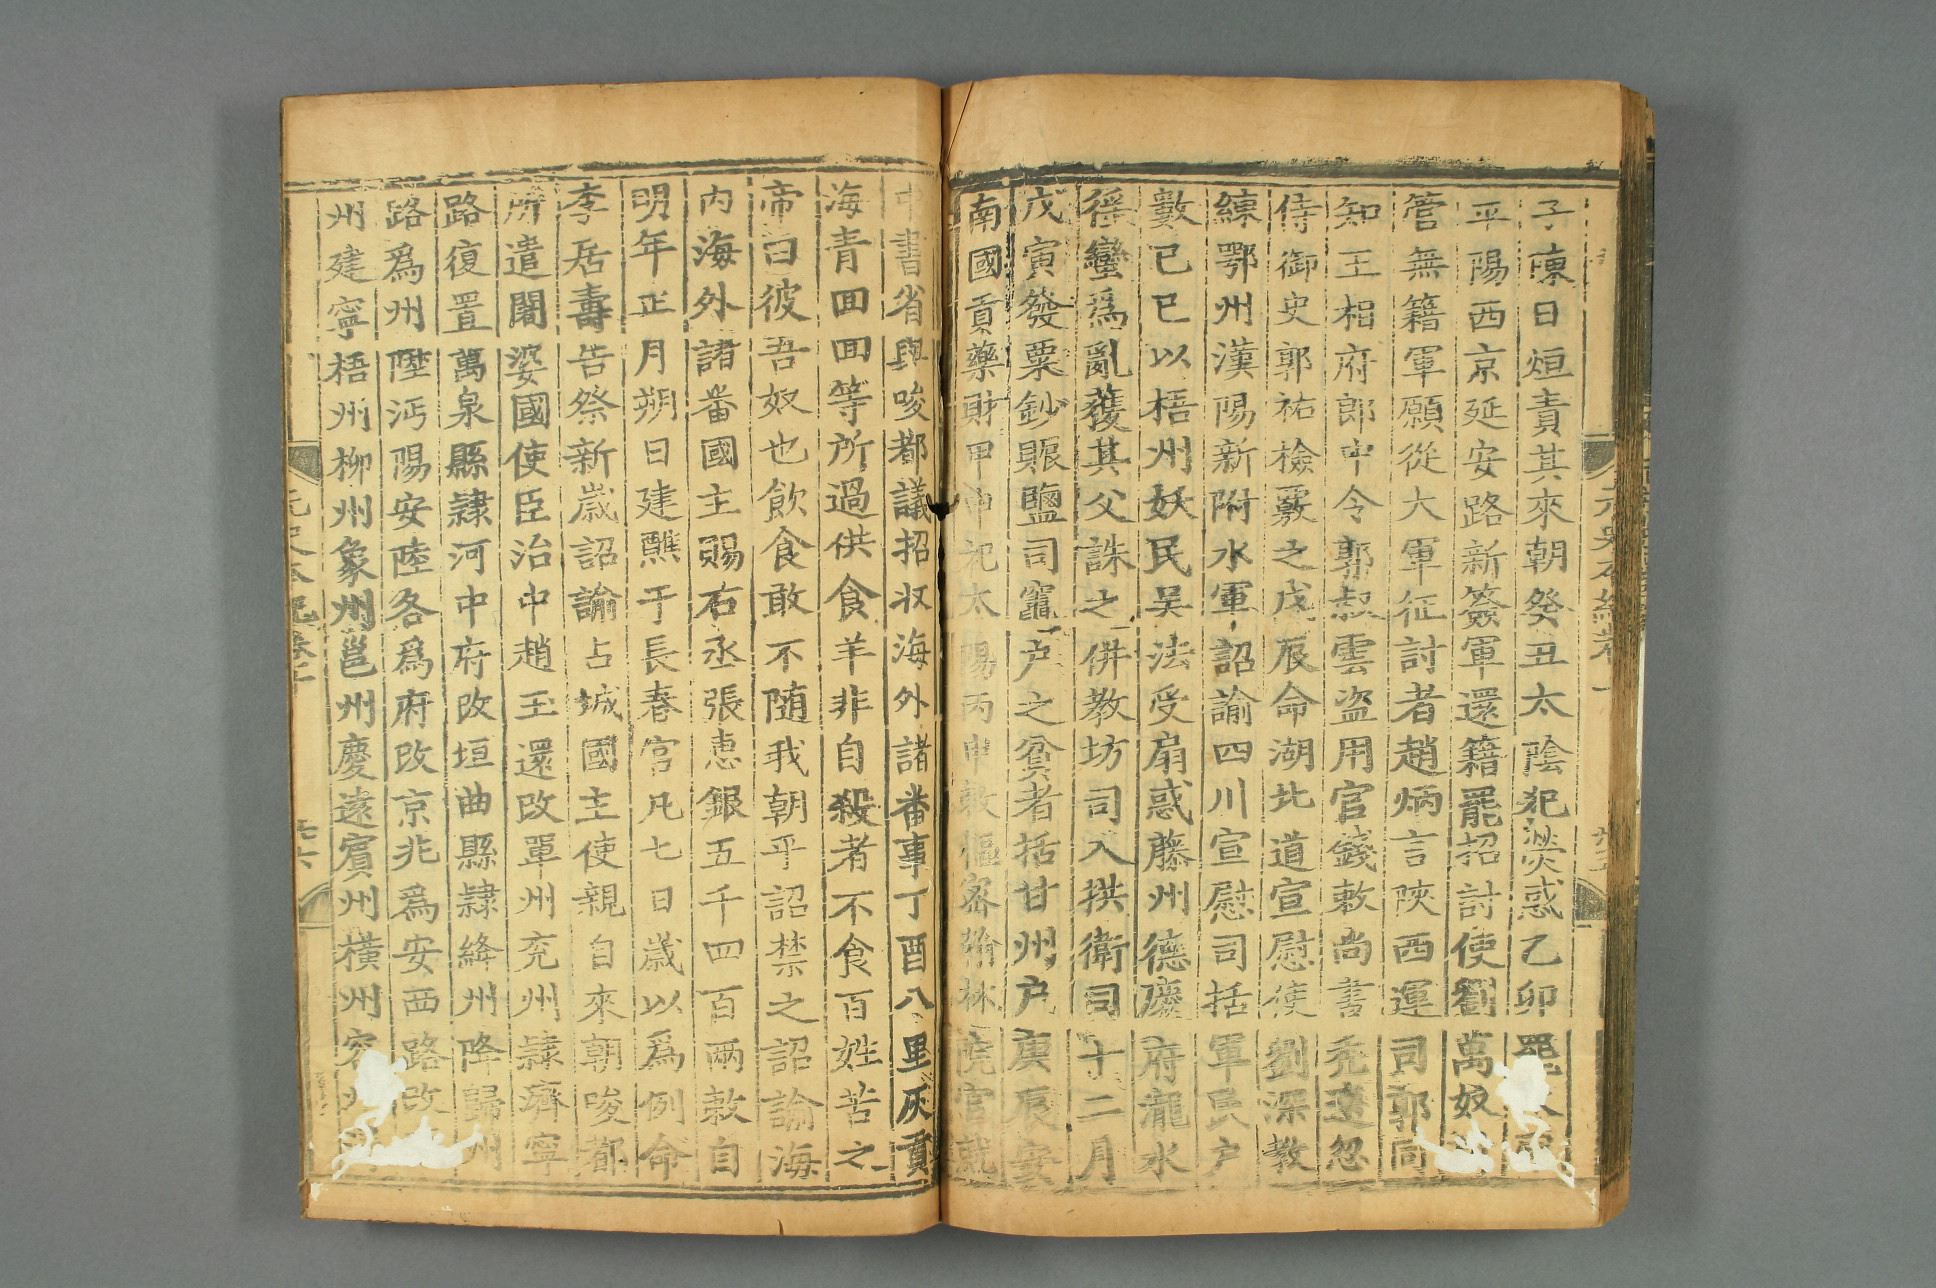 子陳日烜責其來朝癸丑太陰犯熒惑乙卯罷
平陽西京延安路新簽軍還籍罷招討使劉萬奴
管無籍軍願從大軍征討者趙炳言陝西運司郭同
知王相府郎中令郭叔雲盜用官錢敕尚書禿速忽
侍御史郭祐檢覈之戊辰命湖北道宣慰使劉深教
練鄂州漢陽新附水軍詔諭四川宣慰司括軍民户
數己巳以梧州妖民吴法受扇惑藤州德慶府瀧水
徭蠻爲亂獲其父誅之併教坊司入拱衛司十二月
戊寅發粟鈔賑鹽司竈户之貧者括甘州户庚辰安
南國貢藥財甲申祀太陽丙申敕樞密翰林院官就
中書省與唆都議招收海外諸番事丁酉八里灰貢
海青回回等所過供食羊非自殺者不食百姓苦之
帝曰彼吾奴也飲食敢不隨我朝乎詔禁之詔諭海
内海外諸番國主賜右丞張惠銀五千四百兩敕自
明年正月朔日建醮于長春宫凡七日歲以爲例命
李居壽告祭新歲詔諭占城國主使親自來朝唆都
所遣闍婆國使臣治中趙玉還改單州充州隷濟寧
路復置萬泉縣隷河中府改垣曲縣隷絳州降歸州
路爲州陞沔陽安陸各爲府改京兆爲安西路改
州建寧梧州柳州象州邕州慶遠賓州横州容州
元史本紀卷十